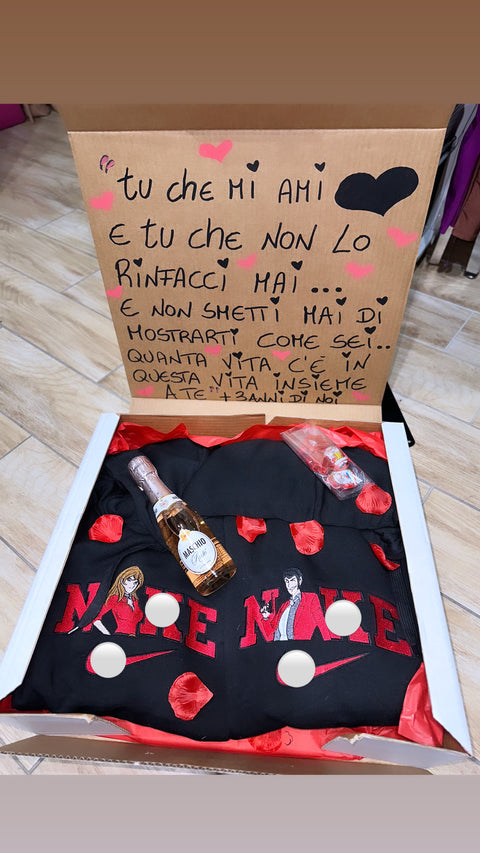 "tu che MI AMI
E tu CHE NON LO
RINFACCI MAI...
E NON SMETTI MAI DI
MOSTRARTI COME SEI..
QUANTA VITA C'E' IN
QUESTA VITA INSIEME
A TE" +3 ANNI DI NOI
MASCHIO
N KE
N KE